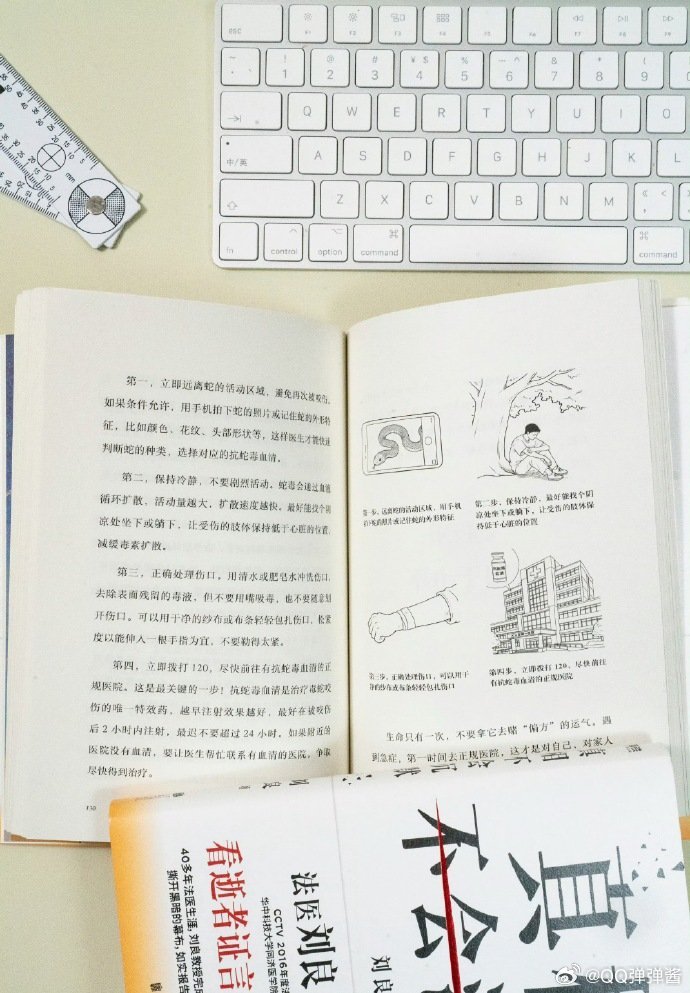 esc
F1
F2
F3
F4
F5
F6
F7
F8
F9
~ · ! 1 @ 2 # 3 ¥ $ 4 % 5 ^ 6 & 7 * 8 ( 9
Q W E R T Y U I O
中/英 A S D F G H J K L
Z X C V B N M
fn control option command command
第一，立即远离蛇的活动区域，避免再次被咬伤。
如果条件允许，用手机拍下蛇的照片或记住蛇的外形特
征，比如颜色、花纹、头部形状等，这样医生才能快速
判断蛇的种类，选择对应的抗蛇毒血清。
第二，保持冷静，不要剧烈活动。蛇毒会通过血液
循环扩散，活动量越大，扩散速度越快。最好能找个阴
凉处坐下或躺下，让受伤的肢体保持低于心脏的位置，
减缓毒素扩散。
第三，正确处理伤口。用清水或肥皂水冲洗伤口，
去除表面残留的毒液，但不要用嘴吸毒，也不要随意划
开伤口。可以用干净的纱布或布条轻轻包扎伤口，松紧
度以能伸入一根手指为宜，不要勒得太紧。
第四，立即拨打 120，尽快前往有抗蛇毒血清的正
规医院。这是最关键的一步！抗蛇毒血清是治疗毒蛇咬
伤的唯一特效药，越早注射效果越好，最好在被咬伤
后 2 小时内注射，最迟不要超过 24 小时。如果附近的
医院没有血清，要让医生帮忙联系有血清的医院，争取
尽快得到治疗。
130
第一步，远离蛇的活动区域，用手机
拍蛇的照片或记住蛇的外形特征
第二步，保持冷静，最好能找个阴
凉处坐下或躺下，让受伤的肢体保
持低于心脏的位置
第三步，正确处理伤口，可以用干
净的纱布或布条轻轻包扎伤口
第四步，立即拨打 120，尽快前往
有抗蛇毒血清的正规医院
生命只有一次，不要拿它去赌“偏方”的运气。遇
到急症，第一时间去正规医院，这才是对自己、对家人
真
不会
刘良
法医刘良
CCTV 2016年度法
华中科技大学同济医学院
看逝者证言
40多年法医生涯，刘良教授完
撕开黑暗的幕布，如实报告
@QQ弹弹酱